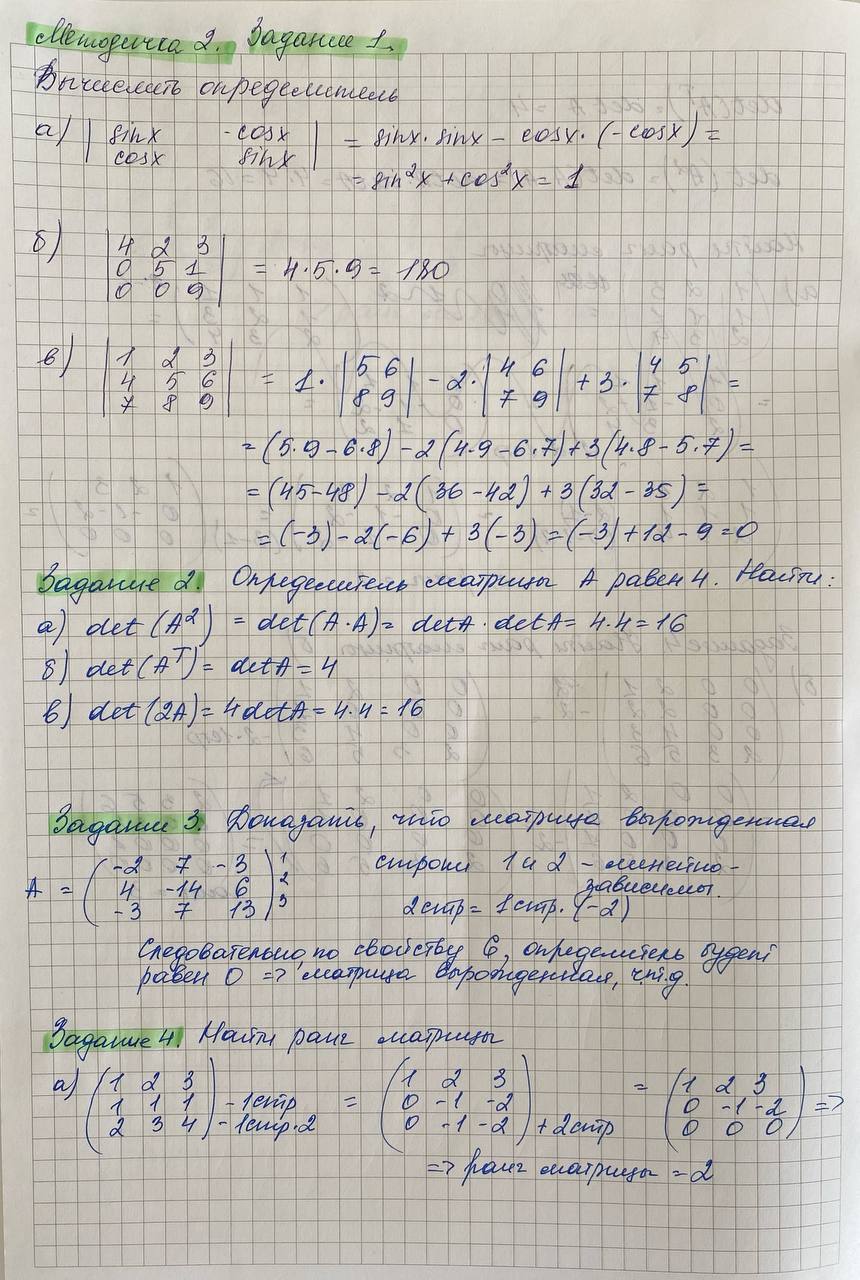 Методичка 2. Задание 1.
Вычислить определитель
а) | sinx -cosx | = sinx·sinx - cosx·(-cosx) =
| cosx sinx | = sin²x + cos²x = 1
б) | 4 2 3 |
| 0 5 1 | = 4·5·9 = 180
| 0 0 9 |
в) | 1 2 3 |
| 4 5 6 | = 1·|5 6| - 2·|4 6| + 3·|4 5| =
| 7 8 9 | |8 9| |7 9| |7 8|
= (5·9 - 6·8) - 2(4·9 - 6·7) + 3(4·8 - 5·7) =
= (45-48) - 2(36-42) + 3(32-35) =
= (-3) - 2(-6) + 3(-3) = (-3) + 12 - 9 = 0
Задание 2. Определитель матрицы А равен 4. Найти:
а) det(A²) = det(A·A) = detA·detA = 4·4 = 16
б) det(Aᵀ) = detA = 4
в) det(2A) = 4detA = 4·4 = 16
Задание 3. Доказать, что матрица вырожденная
A = ( -2 7 -3 ) 1 строки 1 и 2 - линейно-
( 4 -14 6 ) 2 зависимы.
( -3 7 13 ) 3 2стр = 1стр·(-2)
Следовательно, по свойству 6, определитель будет
равен 0 => матрица вырожденная, ч.т.д.
Задание 4. Найти ранг матрицы
а) ( 1 2 3 ) ( 1 2 3 ) = ( 1 2 3 )
( 1 1 1 ) - 1стр = ( 0 -1 -2 ) ( 0 -1 -2 ) =>
( 2 3 4 ) - 1стр·2 ( 0 -1 -2 ) + 2стр ( 0 0 0 )
=> ранг матрицы = 2